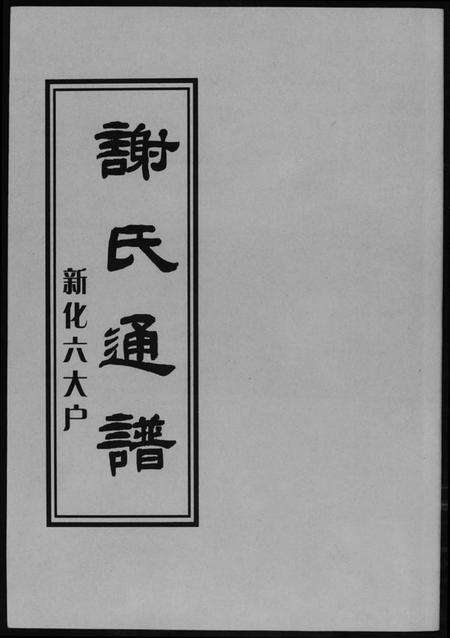 謝氏通譜
新化六大户